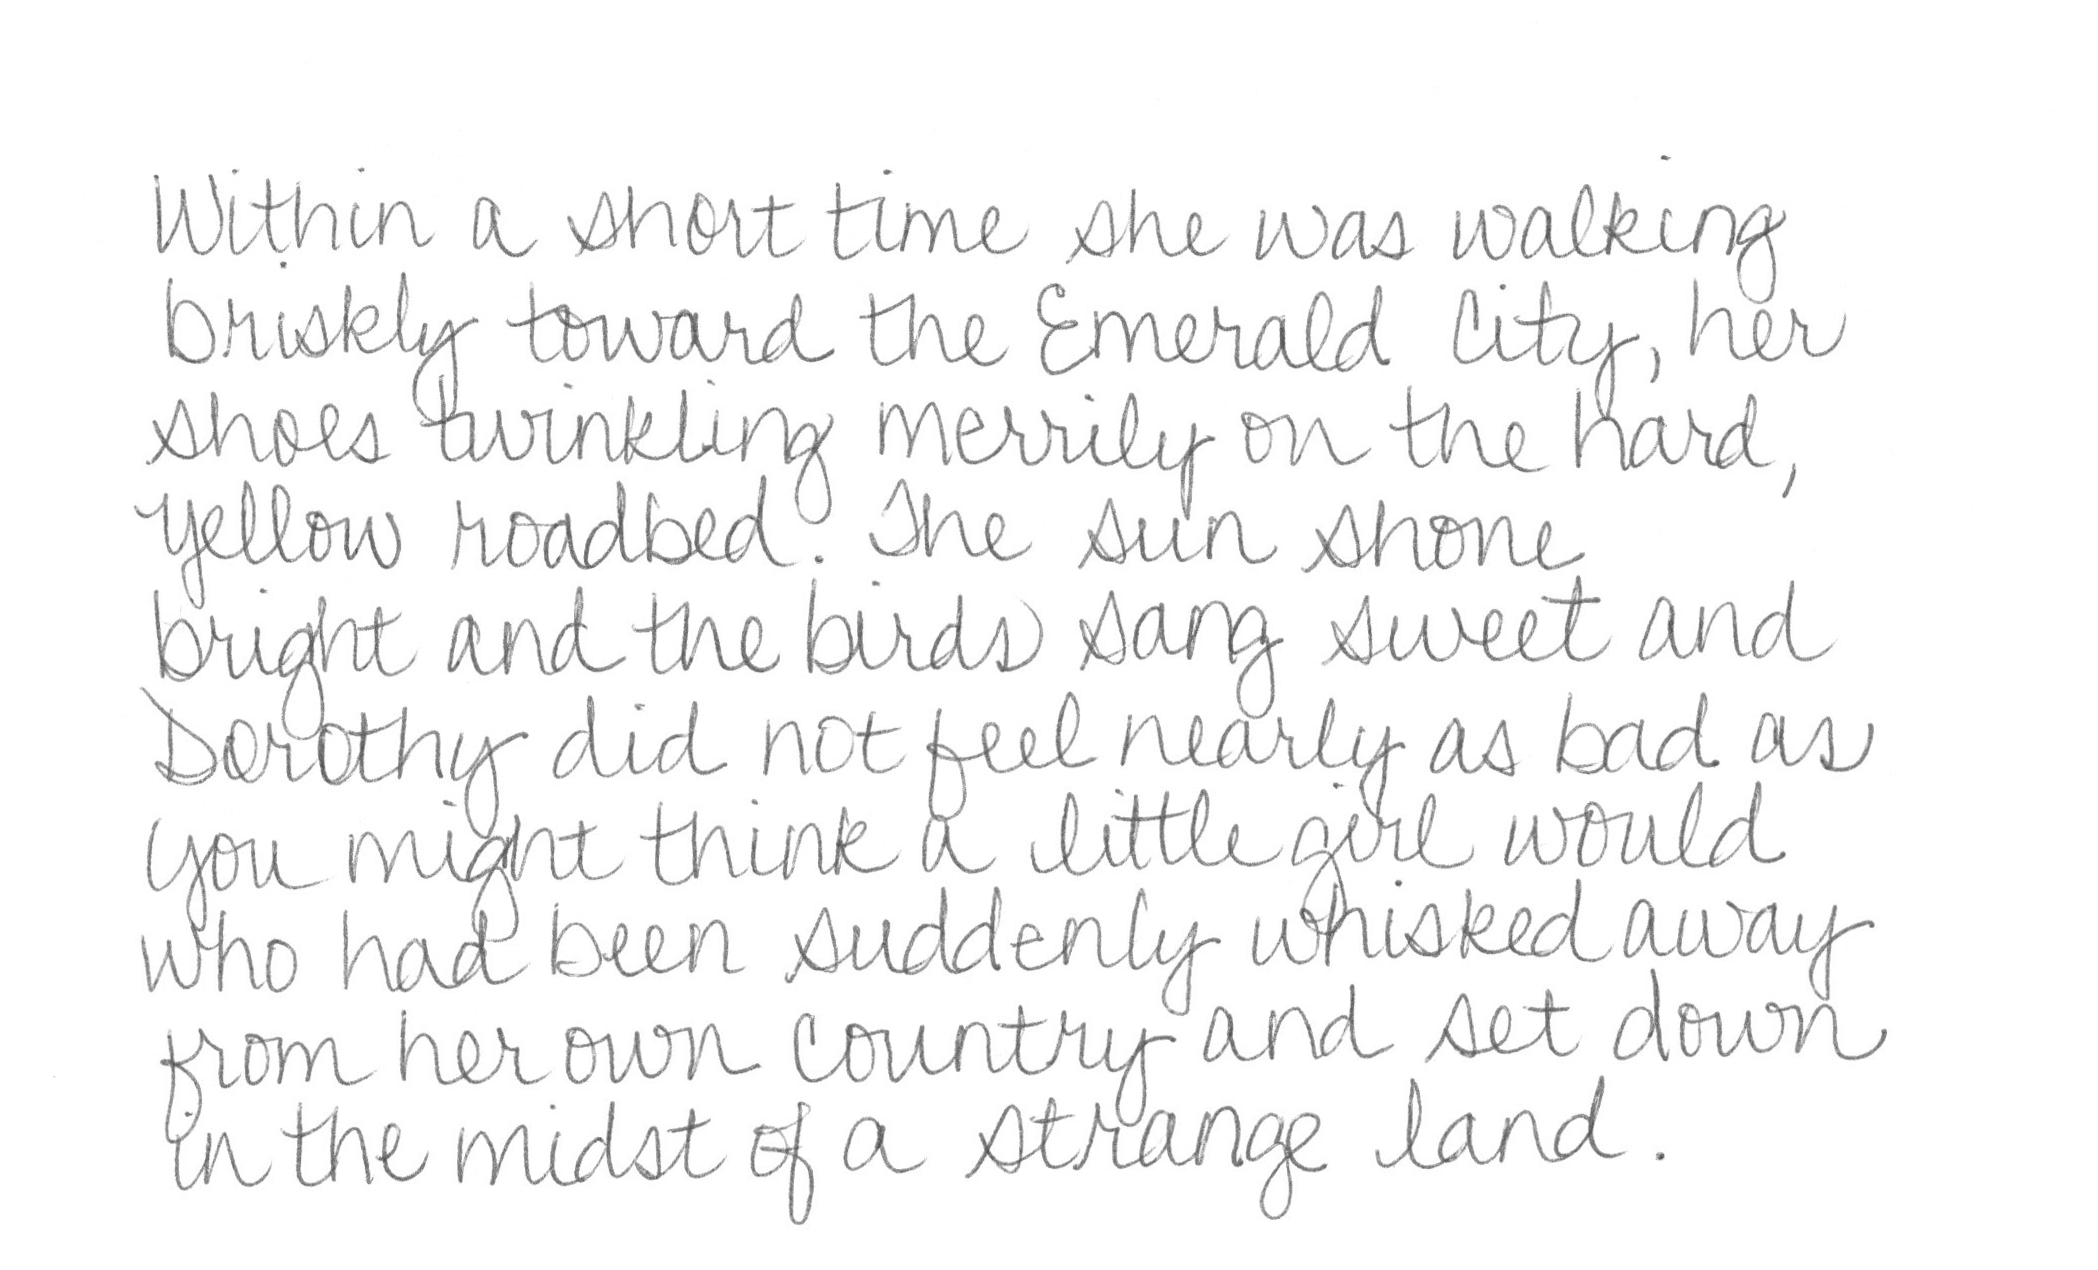 Within a short time she was walking
briskly toward the Emerald City, her
shoes twinkling merrily on the hard,
yellow roadbed. The sun shone
bright and the birds sang sweet and
Dorothy did not feel nearly as bad as
you might think a little girl would
who had been suddenly whisked away
from her own country and set down
in the midst of a strange land.